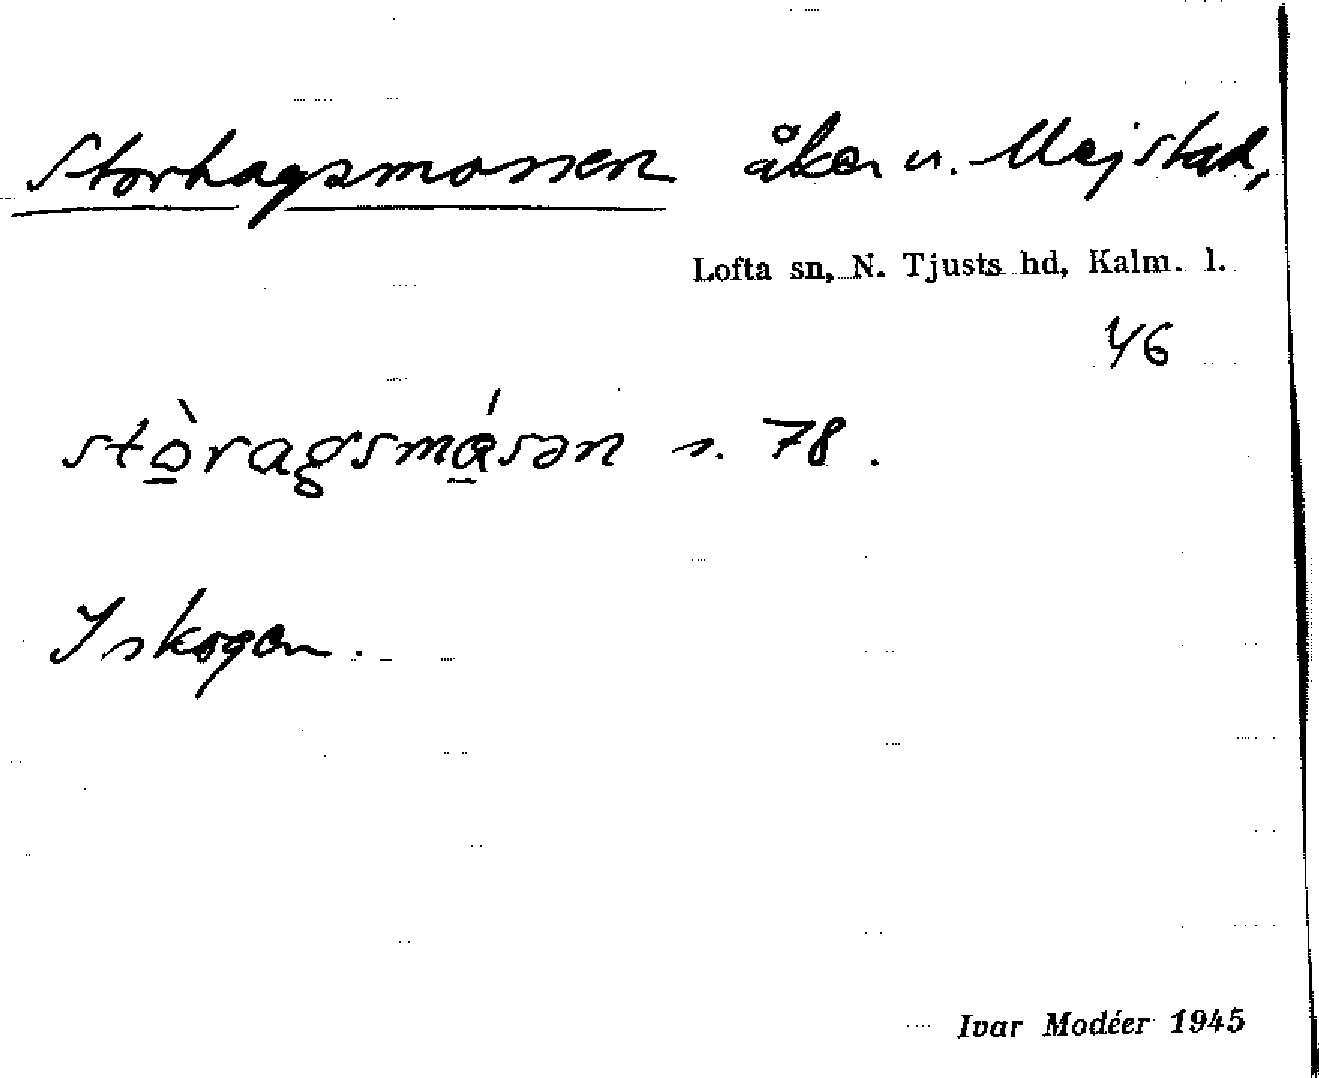 Storhagsmossen åker u. Mejstad,
Lofta sn, N. Tjusts hd, Kalm. l.
46
stò̱ragsmá̱sən s. 78.
I skogen.
Ivar Modéer 1945